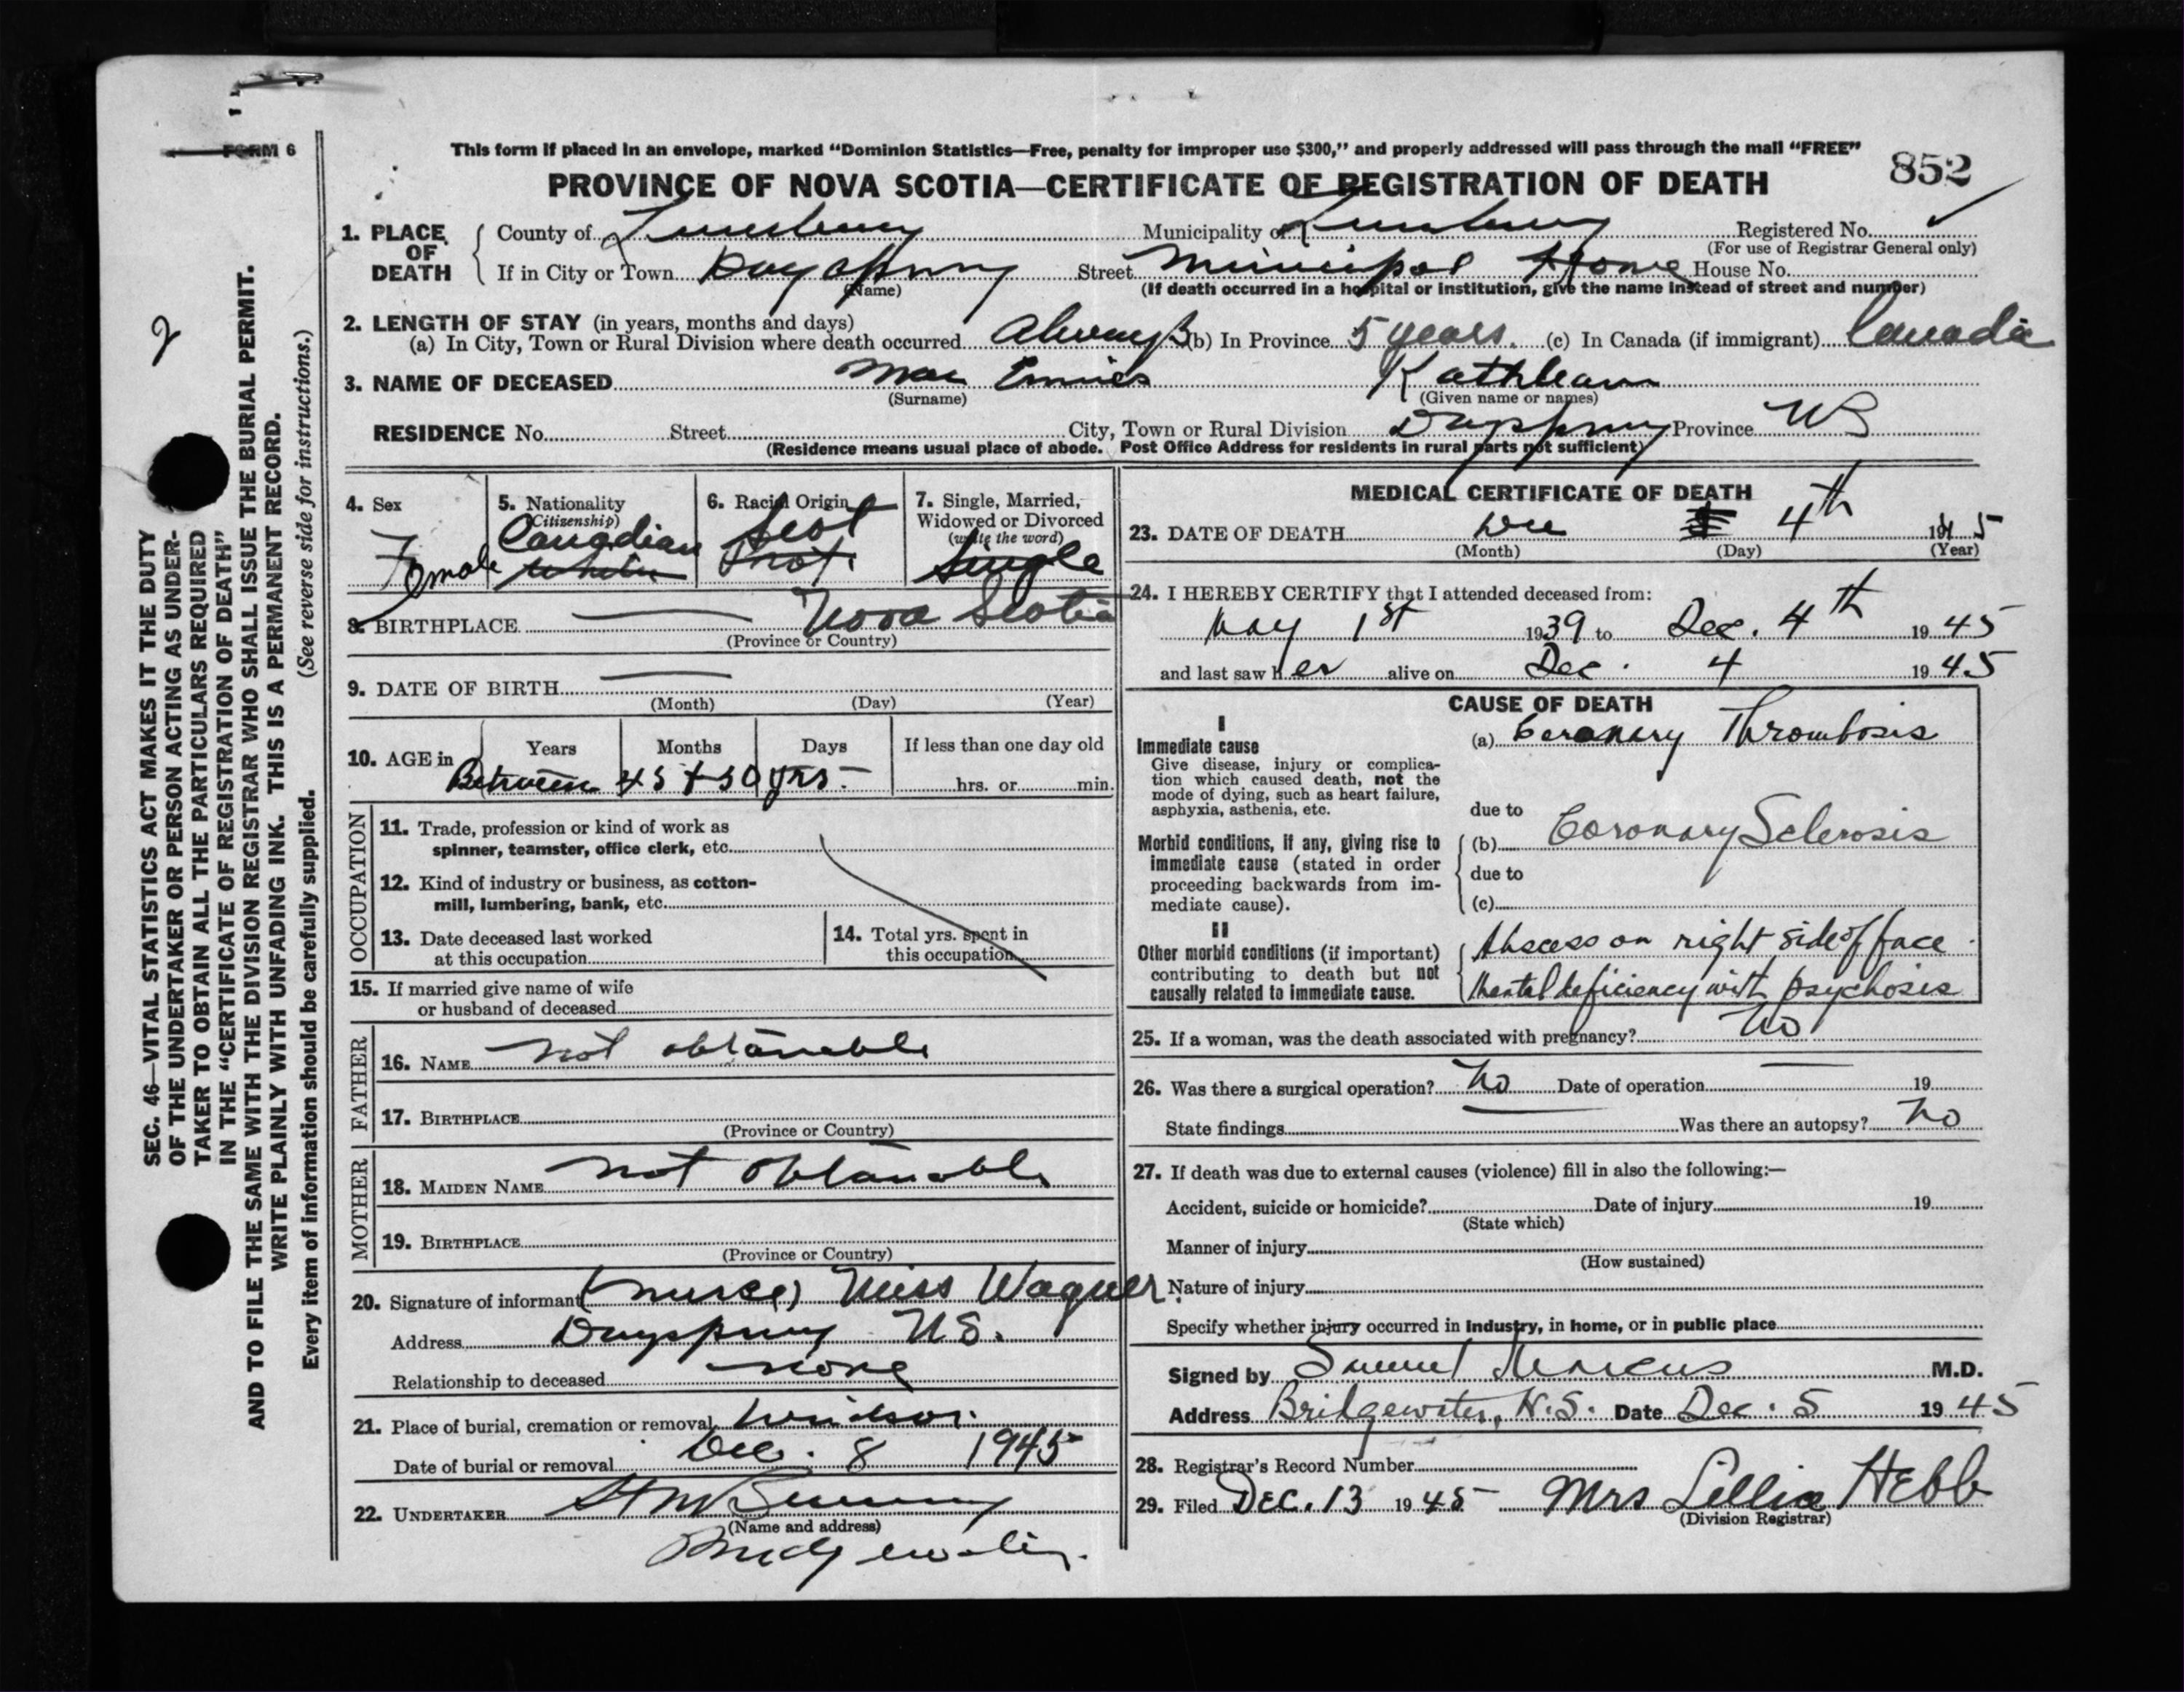 FORM 6
This form if placed in an envelope, marked “Dominion Statistics—Free, penalty for improper use $300,” and properly addressed will pass through the mail “FREE”
852
PROVINCE OF NOVA SCOTIA—CERTIFICATE OF REGISTRATION OF DEATH
1. PLACE OF DEATH
County of Lunenburg Municipality of Lunenburg Registered No.
(For use of Registrar General only)
If in City or Town Dayspring Street Municipal Home House No.
(Name) (If death occurred in a hospital or institution, give the name instead of street and number)
2. LENGTH OF STAY (in years, months and days)
(a) In City, Town or Rural Division where death occurred Always (b) In Province 5 years. (c) In Canada (if immigrant) Canada
3. NAME OF DECEASED Mac Kathleen
(Surname) (Given name or names)
RESIDENCE No. Street City, Town or Rural Division Dayspring Province NS
(Residence means usual place of abode. Post Office Address for residents in rural parts not sufficient)
4. Sex
Female
5. Nationality
(Citizenship)
Canadian
White
6. Racial Origin
Scot
7. Single, Married,
Widowed or Divorced
(write the word)
Single
8. BIRTHPLACE Nova Scotia
(Province or Country)
9. DATE OF BIRTH
(Month) (Day) (Year)
10. AGE in
Years Months Days If less than one day old
Between 45 + 50 yrs. hrs. or min.
OCCUPATION
11. Trade, profession or kind of work as
spinner, teamster, office clerk, etc.
12. Kind of industry or business, as cotton-
mill, lumbering, bank, etc.
13. Date deceased last worked
at this occupation
14. Total yrs. spent in
this occupation
15. If married give name of wife
or husband of deceased
FATHER
16. NAME not obtanable
17. BIRTHPLACE
(Province or Country)
MOTHER
18. MAIDEN NAME not obtanable
19. BIRTHPLACE
(Province or Country)
20. Signature of informant (nurse) Miss Wagner
Address Dayspring NS.
Relationship to deceased none
21. Place of burial, cremation or removal Windsor.
Date of burial or removal Dec. 8 1945
22. UNDERTAKER
(Name and address)
Bridgewater.
MEDICAL CERTIFICATE OF DEATH
23. DATE OF DEATH Dec 4th 1945
(Month) (Day) (Year)
24. I HEREBY CERTIFY that I attended deceased from:
May 1st 1939 to Dec. 4th 19 45
and last saw her alive on Dec. 4 19 45
CAUSE OF DEATH
I
Immediate cause
Give disease, injury or complica-
tion which caused death, not the
mode of dying, such as heart failure,
asphyxia, asthenia, etc.
(a) Coronary Thrombosis
due to
Morbid conditions, if any, giving rise to
immediate cause (stated in order
proceeding backwards from im-
mediate cause).
(b) Coronary Sclerosis
due to
(c)
II
Other morbid conditions (if important)
contributing to death but not
causally related to immediate cause.
Abscess on right side of face.
Mental deficiency with psychosis
25. If a woman, was the death associated with pregnancy? No
26. Was there a surgical operation? No Date of operation 19
State findings Was there an autopsy? No
27. If death was due to external causes (violence) fill in also the following:—
Accident, suicide or homicide? Date of injury 19
(State which)
Manner of injury
(How sustained)
Nature of injury
Specify whether injury occurred in industry, in home, or in public place
Signed by Samuel Marcus M.D.
Address Bridgewater, N.S. Date Dec. 5 19 45
28. Registrar’s Record Number
29. Filed DEC. 13 19 45 Mrs Lillia Hebb
(Division Registrar)
2
SEC. 46—VITAL STATISTICS ACT MAKES IT THE DUTY
OF THE UNDERTAKER OR PERSON ACTING AS UNDER-
TAKER TO OBTAIN ALL THE PARTICULARS REQUIRED
IN THE “CERTIFICATE OF REGISTRATION OF DEATH”
AND TO FILE THE SAME WITH THE DIVISION REGISTRAR WHO SHALL ISSUE THE BURIAL PERMIT.
WRITE PLAINLY WITH UNFADING INK. THIS IS A PERMANENT RECORD.
Every item of information should be carefully supplied. (See reverse side for instructions.)